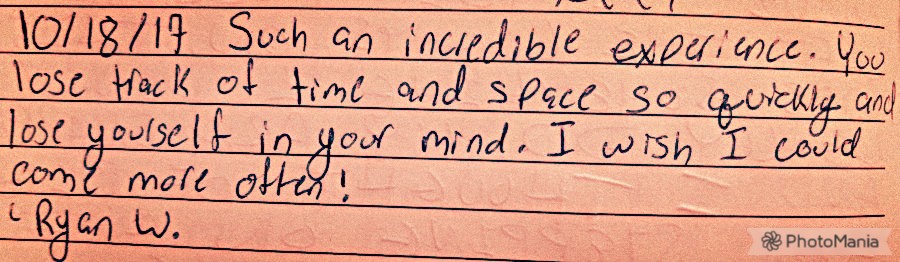 10/18/17 Such an incredible experience. You
lose track of time and space so quickly and
lose yourself in your mind. I wish I could
come more often!
Ryan W.
PhotoMania